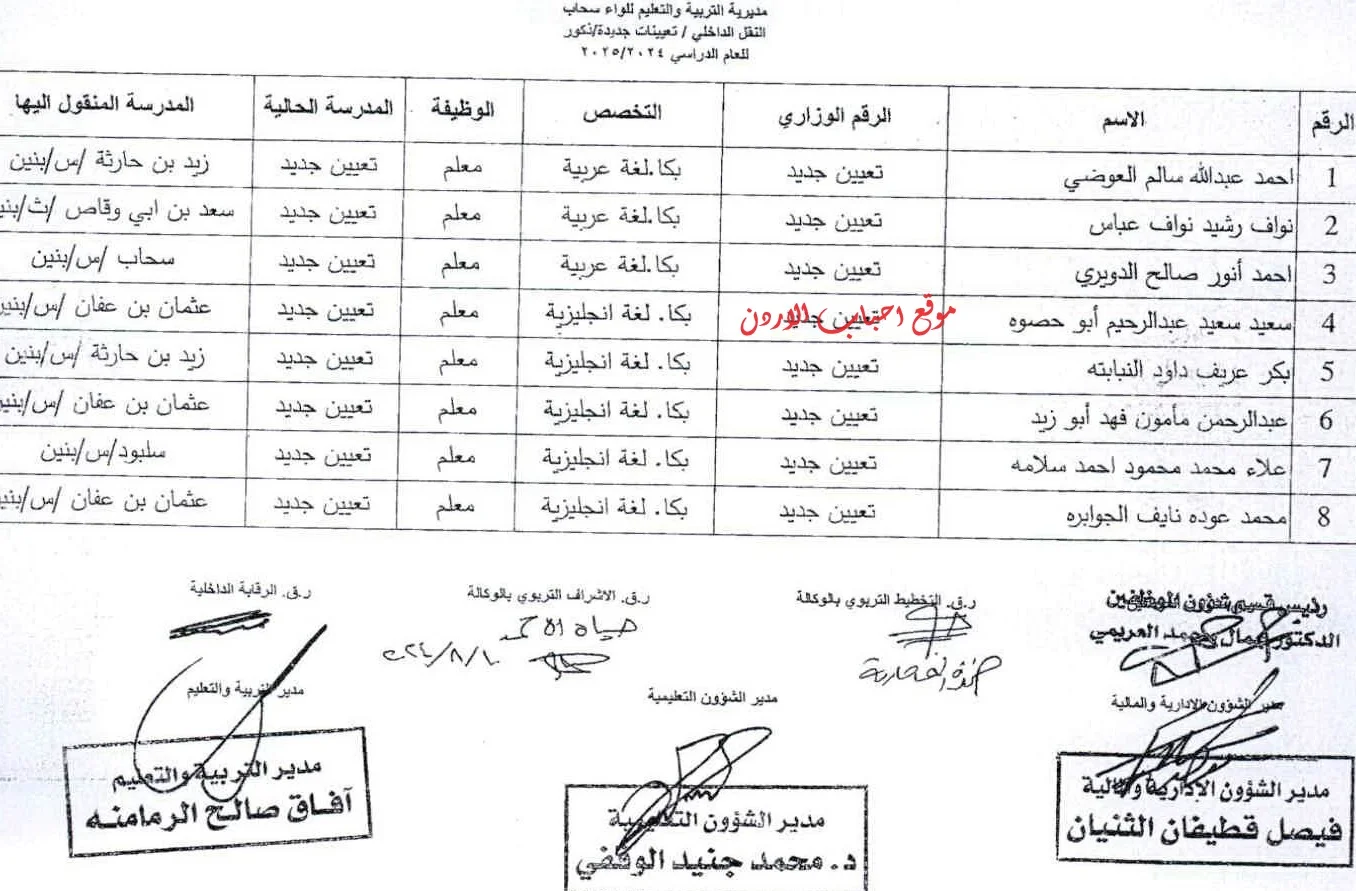 مديرية التربية والتعليم للواء سحاب
النقل الداخلي / تعيينات جديدة/ذكور
للعام الدراسي ٢٠٢٥/٢٠٢٤
الرقم الاسم الرقم الوزاري التخصص الوظيفة المدرسة الحالية المدرسة المنقول اليها
1 احمد عبدالله سالم العوضي تعيين جديد بكا.لغة عربية معلم تعيين جديد زيد بن حارثة /س/بنين
2 نواف رشيد نواف عباس تعيين جديد بكا.لغة عربية معلم تعيين جديد سعد بن ابي وقاص /ث/بني
3 احمد أنور صالح الدويري تعيين جديد بكا.لغة عربية معلم تعيين جديد سحاب /س/بنين
4 سعيد سعيد عبدالرحيم أبو حصوه تعيين جديد بكا. لغة انجليزية معلم تعيين جديد عثمان بن عفان /س/بنين
موقع احباب الاردن
5 بكر عريف داود النبابته تعيين جديد بكا. لغة انجليزية معلم تعيين جديد زيد بن حارثة /س/بنين
6 عبدالرحمن مأمون فهد أبو زيد تعيين جديد بكا. لغة انجليزية معلم تعيين جديد عثمان بن عفان /س/بنين
7 علاء محمد محمود احمد سلامه تعيين جديد بكا. لغة انجليزية معلم تعيين جديد سلبود/س/بنين
8 محمد عوده نايف الجوابره تعيين جديد بكا. لغة انجليزية معلم تعيين جديد عثمان بن عفان /س/بنين
رئيس قسم شؤون الموظفين ر.ق. التخطيط التربوي بالوكالة ر.ق. الاشراف التربوي بالوكالة ر.ق. الرقابة الداخلية
الدكتور جمال محمد العريمي
حياة
٢٠٢٤/٨/١٠
مدير الشؤون الإدارية والمالية مدير الشؤون التعليمية مدير التربية والتعليم
مدير الشؤون الإدارية والمالية
فيصل قطيفان الثنيان
مدير الشؤون التعليمية
د. محمد جنيد الوقفي
مدير التربية والتعليم
آفاق صالح الرمامنه